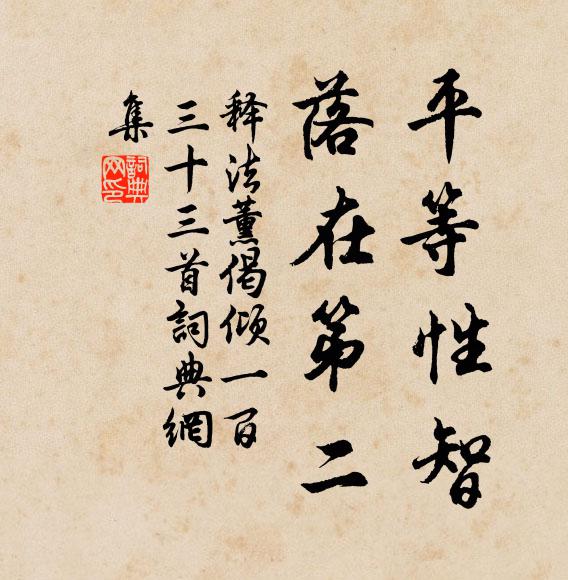 平等性智
落在第二
释法薰偈倾一百
三十三首詞典網
集
詞典网印